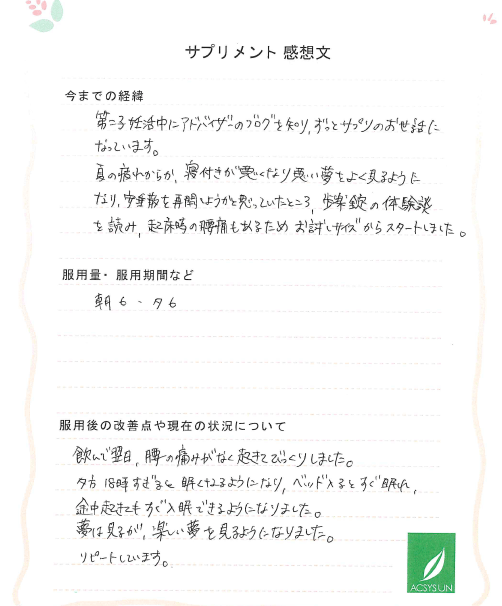 サプリメント 感想文
今までの経緯
第二子妊活中にアドバイザーのブログを知り、ずっとサプリのお世話に
なっています。
夏の疲れからか、寝付きが悪くなり悪い夢をよく見るように
なり、を再開しようかと思っていたところ、錠の体験談
を読み、起床時の腰痛もあるためお試しサイズからスタートしました。
服用量・服用期間など
朝6・夕6
服用後の改善点や現在の状況について
飲んで翌日、腰の痛みがなく起きてびっくりしました。
夕方18時すぎると眠くなるようになり、ベッド入るとすぐ眠れ、
途中起きてもすぐ入眠できるようになりました。
夢は見るが、楽しい夢を見るようになりました。
リピートしています。
ACSYSUN